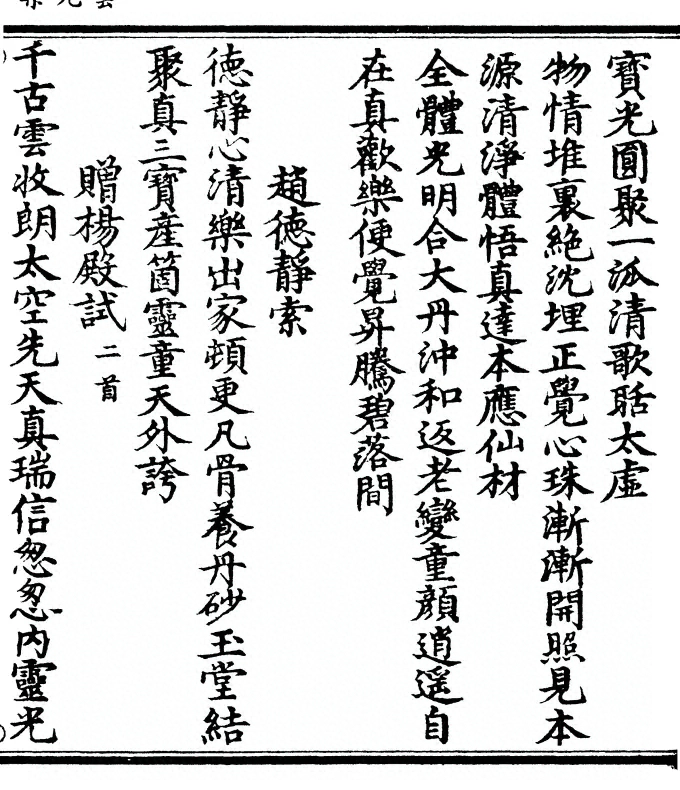 寶光圓聚一派清歌聒太虛
物情堆裏絕沈埋正覺心珠漸漸開照見本
源清淨體悟真達本應仙材
全體光明合大丹沖和返老變童顏逍遥自
在真歡樂便覺昇騰碧落間
趙德靜索
德靜心清樂出家頓更凡骨養丹砂玉堂結
聚真三寶産箇靈童天外誇
贈楊殿試二首
千古雲收朗太空先天真瑞信怱怱内靈光